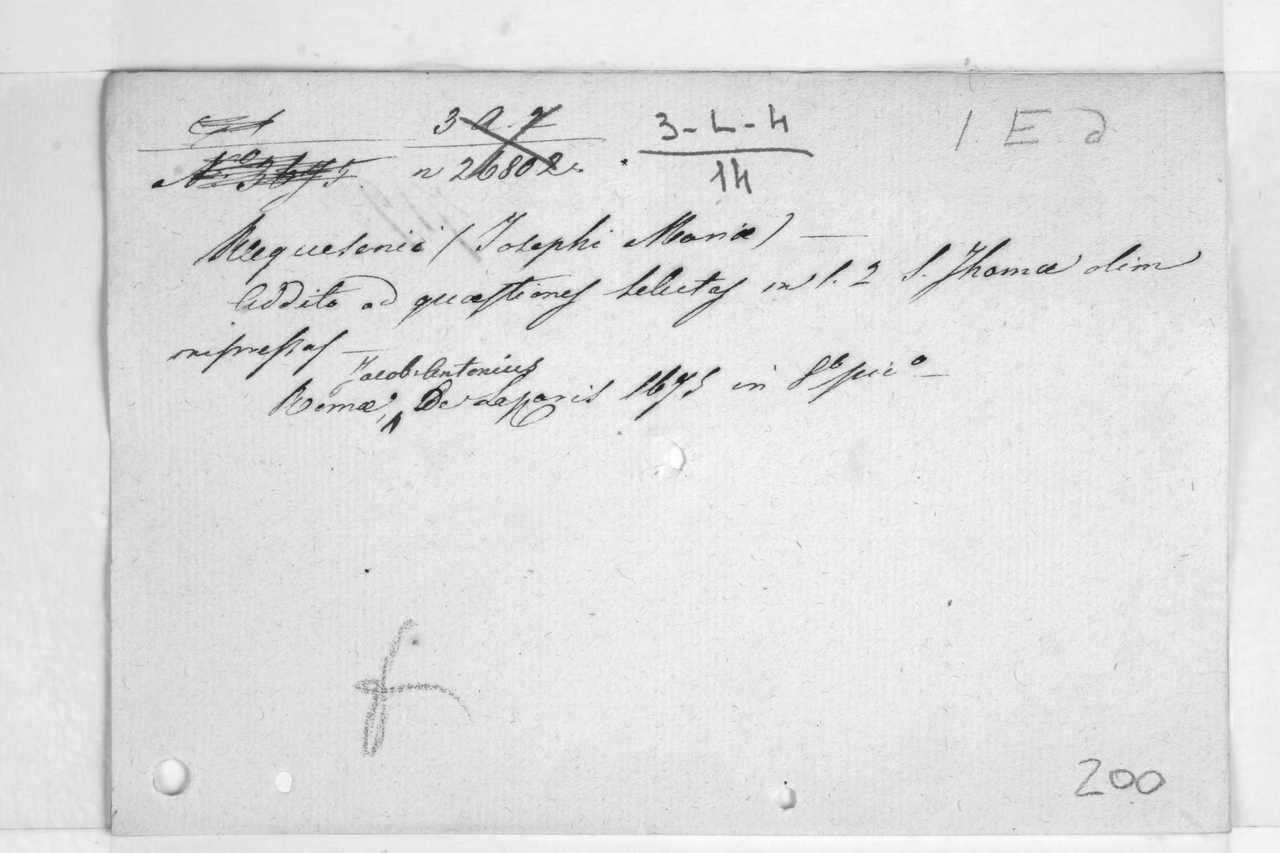 3 A. 7 3-L-4 1 E d
n 26802. 14
Requesenii (Josephi Mariæ) —
Addita ad quæstiones selectas in 1. 2 S. Thomæ olim
impressas —
Jacob. Antonius
Romæ, De Lazaris 1675 in 8º pic.º —
200